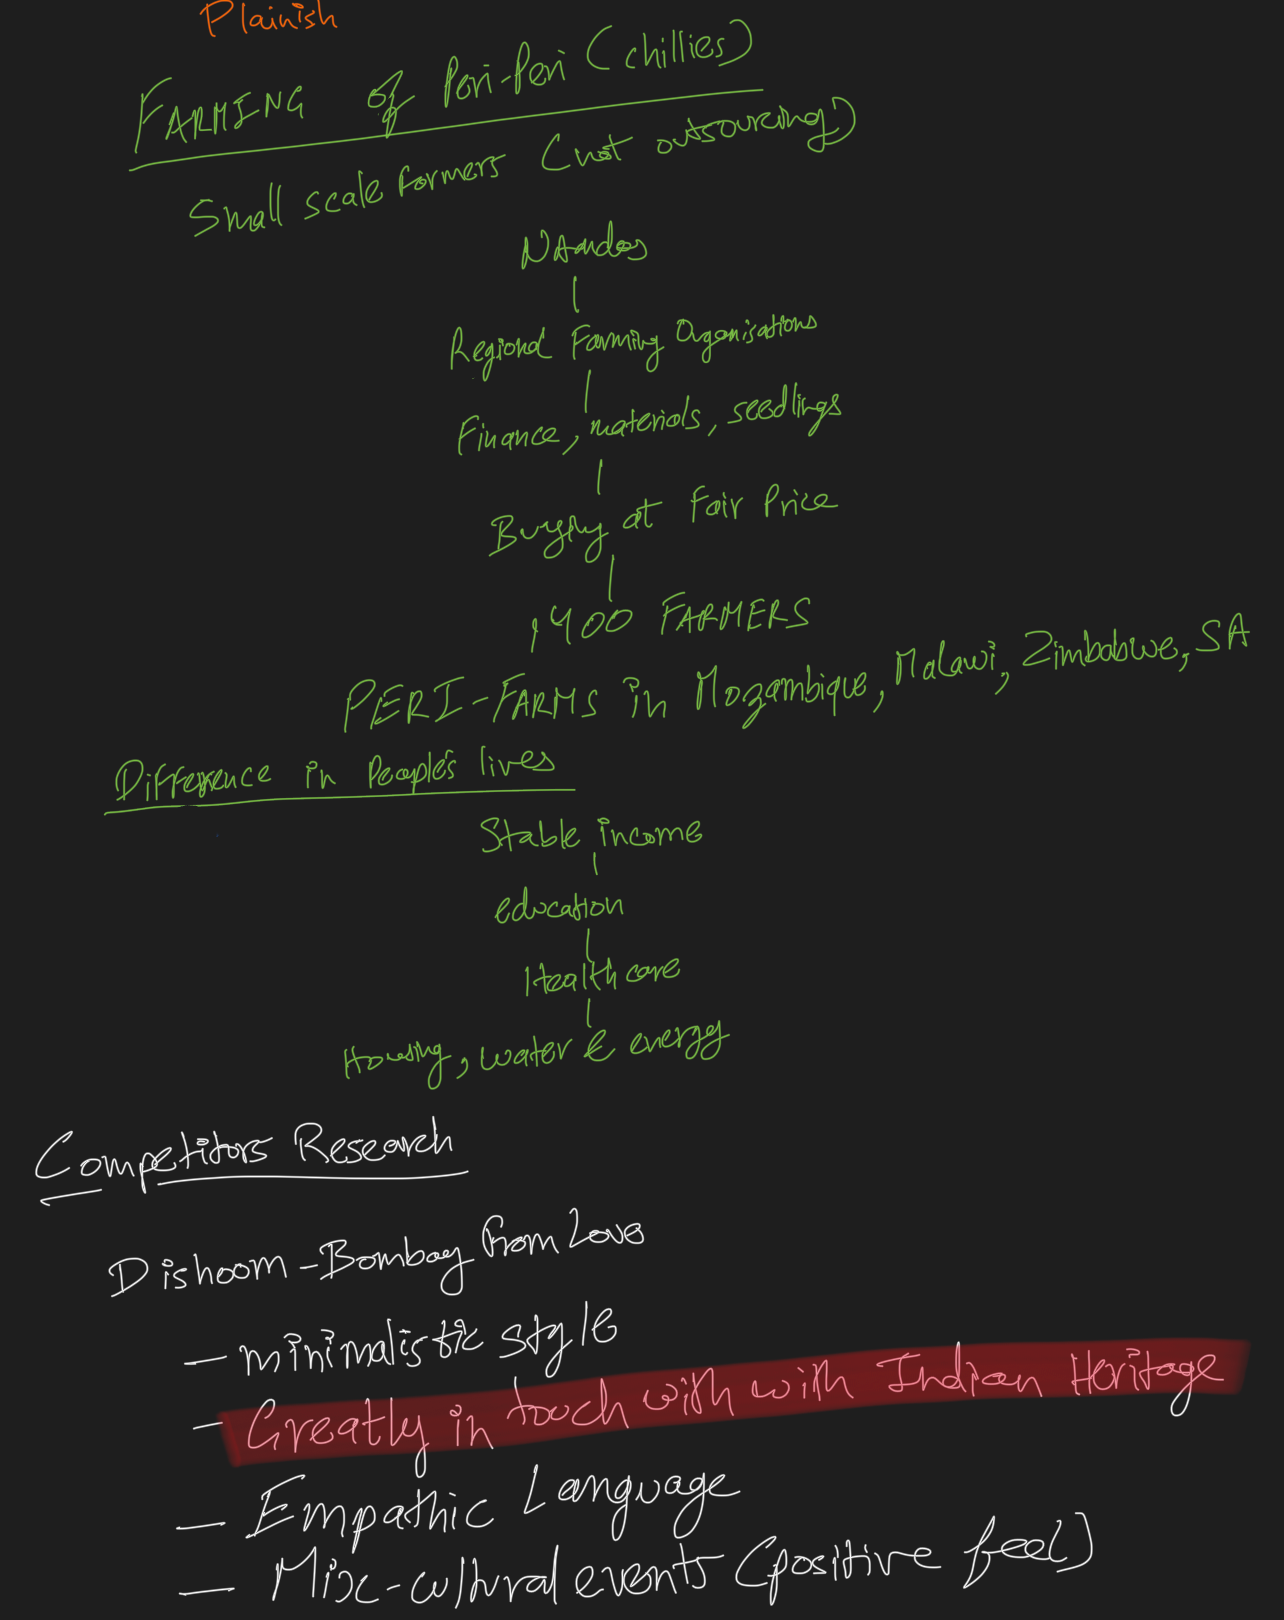 Plainish
FARMING of Peri-Peri (chillies)
Small scale farmers (not outsourcing)
NAndos
Regional Farming Organisations
Finance, materials, seedlings
Buying at Fair Price
1400 FARMERS
PERI-FARMS in Mozambique, Malawi, Zimbabwe, SA
Difference in People's lives
Stable income
education
Healthcare
Housing, water & energy
Competitors Research
Dishoom - Bombay From Love
- minimalistic style
- Greatly in touch with with Indian Heritage
- Empathic Language
- Misc-cultural events (positive feel)